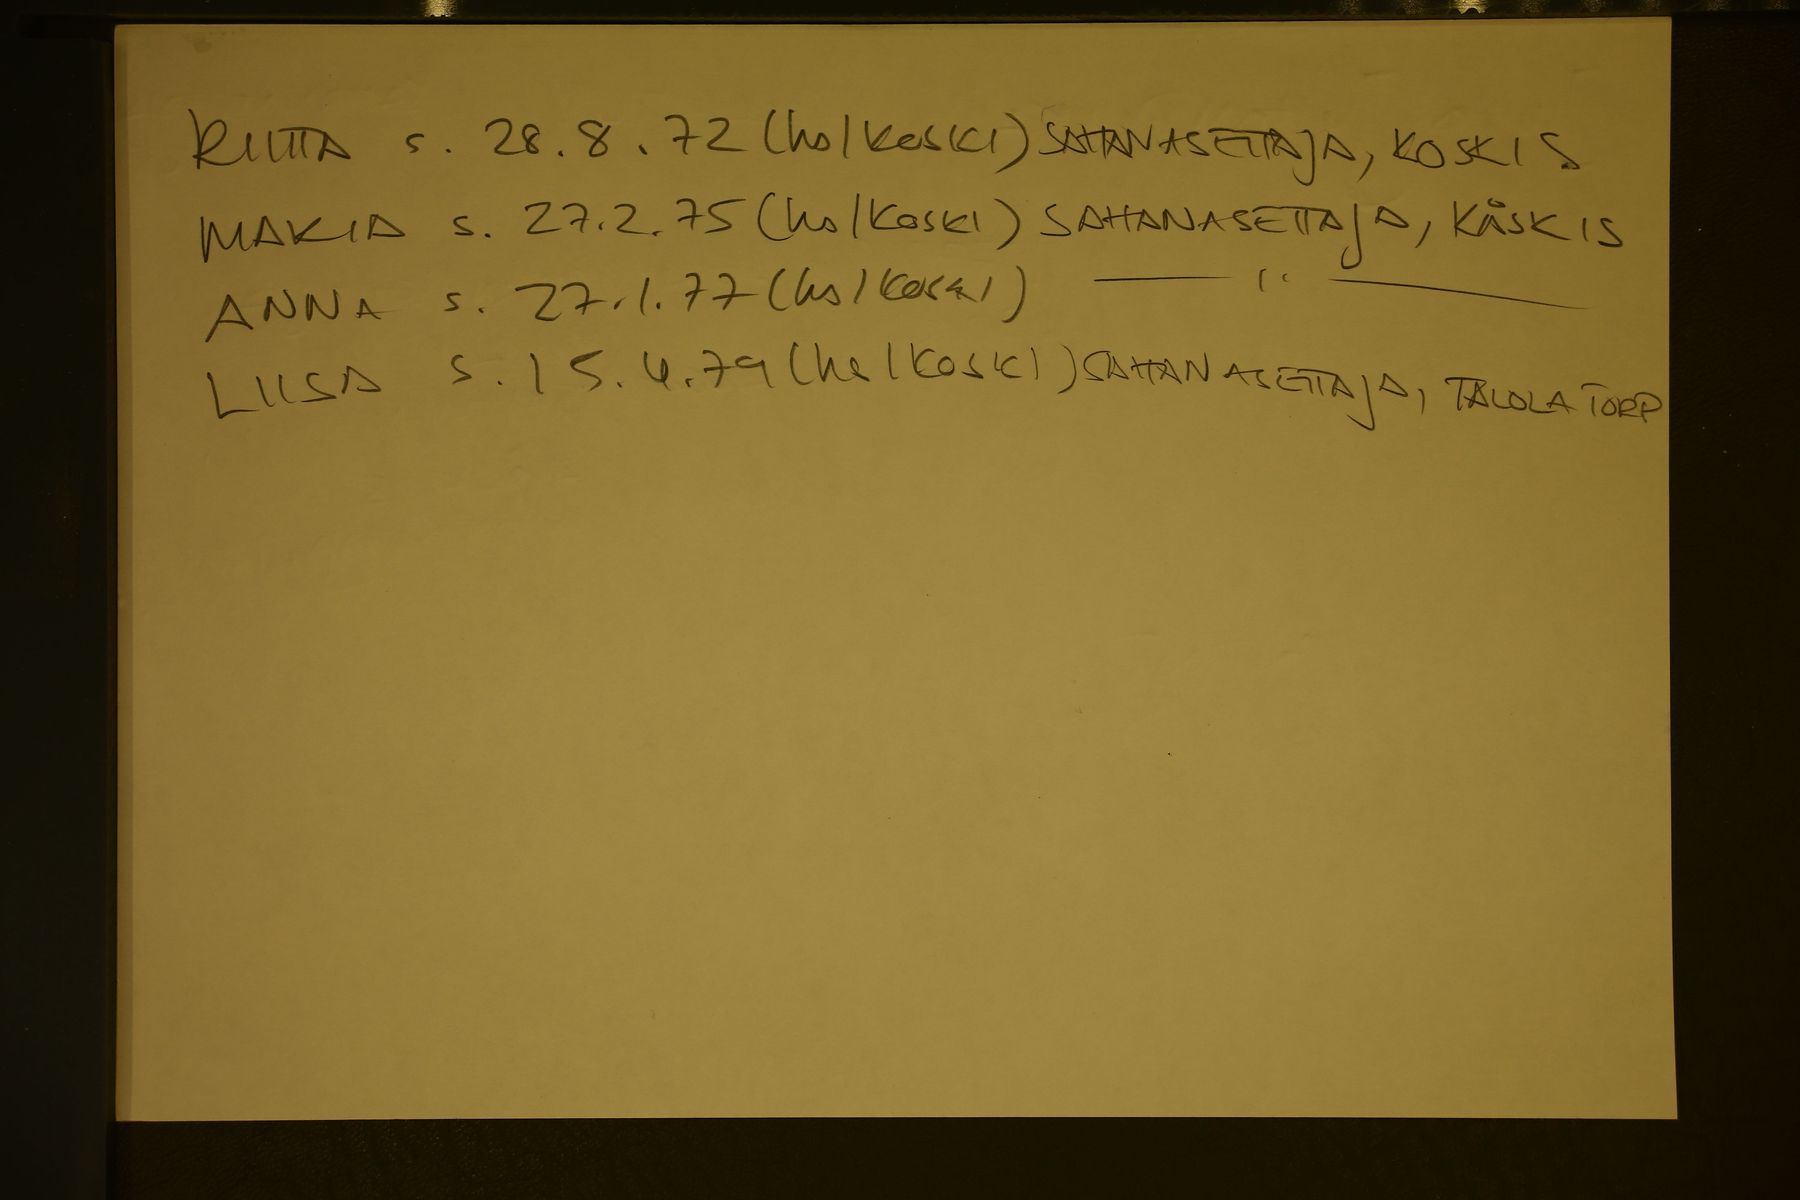 RIITTA s. 28.8.72 (holkoski) SAHANASETTAJA, KOSKIS
MARIA s. 27.2.75 (holkoski) SAHANASETTAJA, KÅSKIS
ANNA s. 27.1.77 (holkoski) — " —
LIISA s. 15.4.79 (holkoski) SAHANASETTAJA, TALOLA TORP